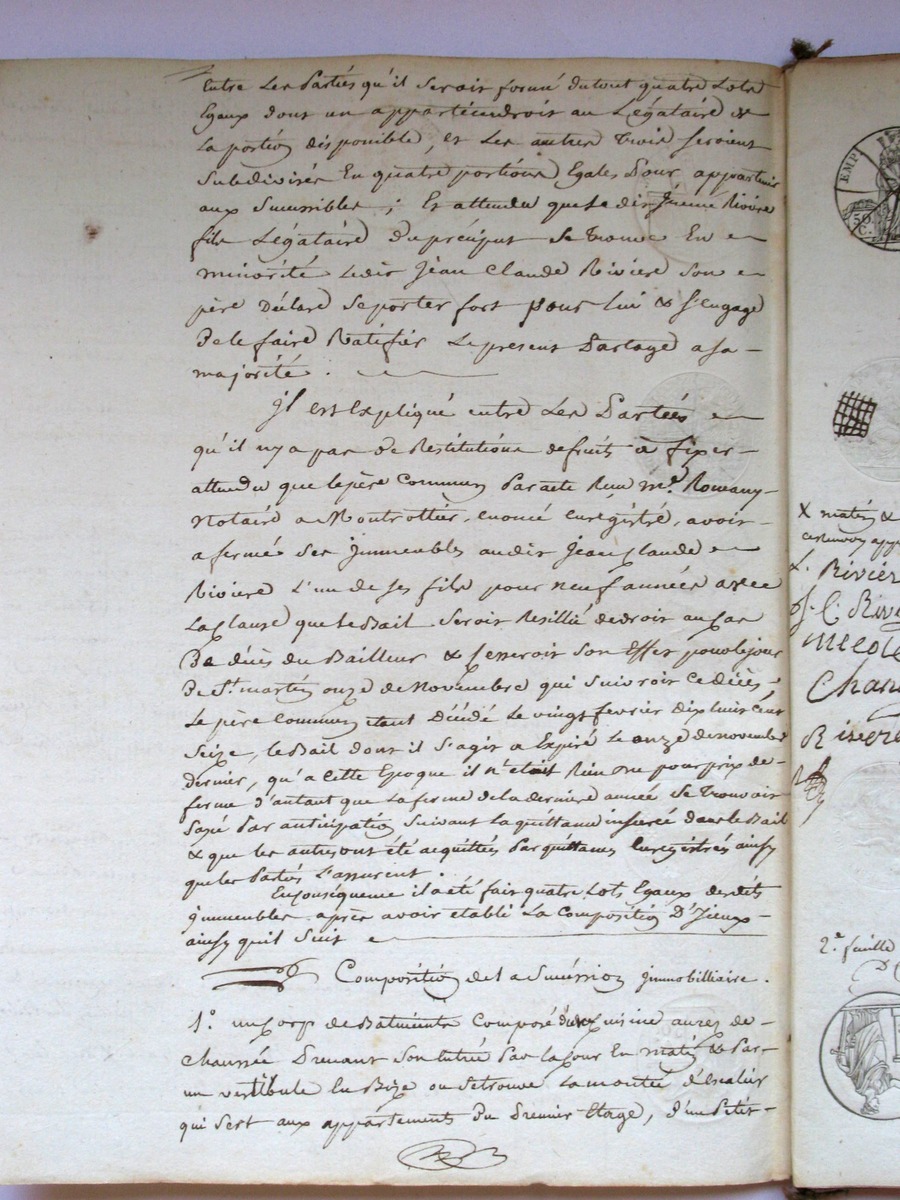 Entre Les Partiés qu'il seroit formé du tout quatre Lots
Egaux dont un appartiendroit au Légataire de
La portion disponible, et Les autres trois seroient
subdivisés En quatre portions Egales Pour appartenir
aux successibles; Et attendu que Le dit Riviere
fils Légataire du préciput se trouve En
minorité Ledit Jean Claude Riviere son
père Déclare se porter fort pour lui & s'Engage
De le faire Ratifier Le present Partage a sa
majorité.
Il est Expliqué entre Les Parties
qu'il n'y a pas de Restitutions de fruits à fixer
attendu que le père Commun Par acte Reçu Me. Romany
Notaire a Montrottier, enoncé enregistré, avoit
afermé ses Immeubles audit Jean Claude
Riviere L'un de ses fils pour neuf années avec
La Clause que Le Bail seroit Résillié de droit au Cas
De décès du Bailleur & Cesseroit son Effet pour le jour
De St. martin onze de Novembre qui suivroit Ce décès;
Le père Commun étant Décédé Le vingt fevrier dix huit Cent
seize, le Bail dont il s'agit a Expiré Le onze de novembre
dernier, qu'a Cette Epoque il n'était Rien du pour prix de
ferme d'autant que La ferme de la derniere année se trouvait
payé Par anticipation suivant la quittance inserée dans le Bail
& que les autres ont été acquittés Par quittances Enregistrés ainsy
que les Partiés L'assurent.
En conséquence il a été fait quatre Lots Egaux desdits
Immeubles, après avoir établi La Composition D'Iceux
ainsy qu'il suit
Composition de La succession Immobilliaire.
1°. un Corp de Batiments Composé d'une Cuisine au rez de
Chaussée Prenant son Entrée Par la Cour En matin & Par
un vestibule En Bize ou se trouve La montée d'Escalier
qui sert aux appartements Du Premier Etage, d'un Petit
EMP
50
C.
X matin &
L. Rivier
J. C. Rivi
2e feuille